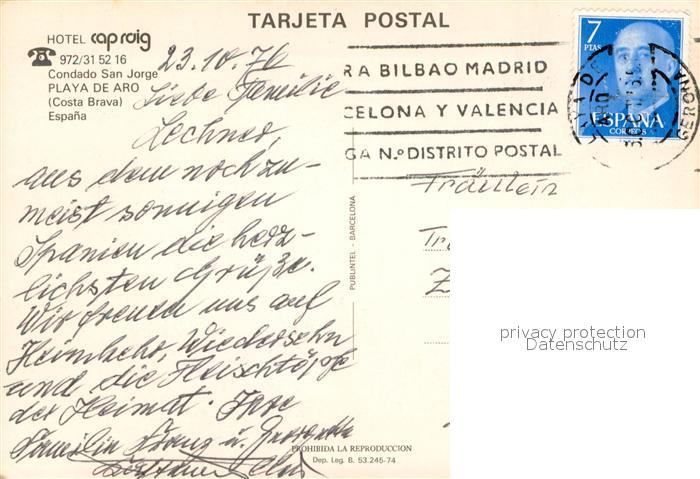 TARJETA POSTAL
HOTEL cap roig
972/31 52 16
Condado San Jorge
PLAYA DE ARO
(Costa Brava)
España
23.10.76
Liebe Familie
Lechner,
aus dem noch zu-
meist sonnigen
Spanien die herz-
lichsten Grüße.
Wir freuen uns auf
Heimkehr, Wiedersehn
und die Fleischtöpfe
der Heimat. Ihre
Familie Franz u.
RA BILBAO MADRID
CELONA Y VALENCIA
GA N.º DISTRITO POSTAL
7
PTAS
ESPAÑA
CORREOS
GERONA
Fräulein
PUBLINTEL - BARCELONA
privacy protection
Datenschutz
PROHIBIDA LA REPRODUCCION
Dep. Leg. B. 53.245-74